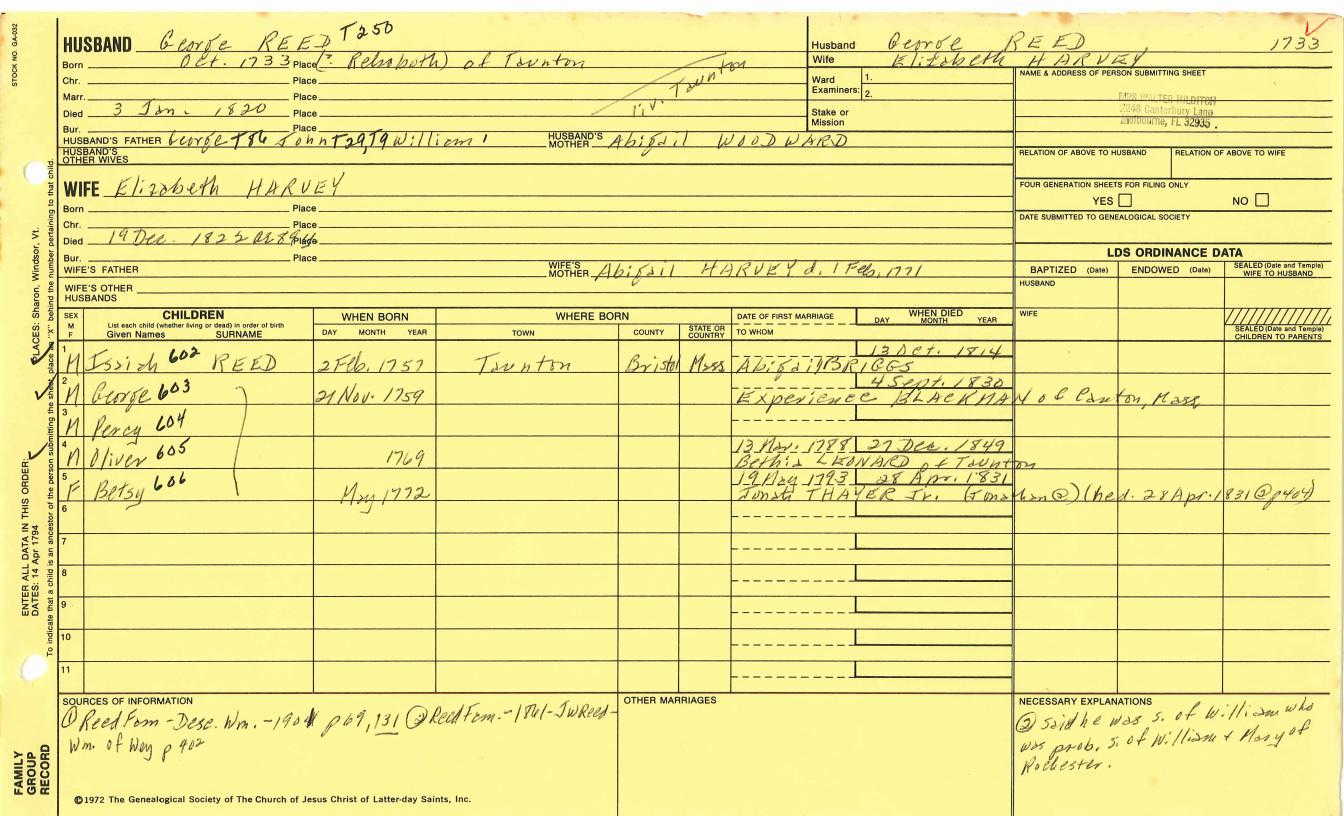 STOCK NO. GA-032
HUSBAND George REED T250
Born Oct. 1733 Place (?: Rehoboth) of Taunton
Chr. Place liv. Taunton
Marr. Place
Died 3 Jan. 1820 Place
Bur. Place
HUSBAND'S FATHER George T86 John T29, T9 William' HUSBAND'S MOTHER Abigail WOODWARD
HUSBAND'S OTHER WIVES
WIFE Elizabeth HARVEY
Born Place
Chr. Place
Died 19 Dec. 1822 Place
Bur. Place
WIFE'S FATHER WIFE'S MOTHER Abigail HARVEY d. 1 Feb. 1771
WIFE'S OTHER HUSBANDS
Husband George REED 1733
Wife Elizabeth HARVEY
Ward Examiners: 1.
2.
Stake or Mission
NAME & ADDRESS OF PERSON SUBMITTING SHEET
2848 Canterbury Lane
Melbourne, FL 32935
RELATION OF ABOVE TO HUSBAND RELATION OF ABOVE TO WIFE
FOUR GENERATION SHEETS FOR FILING ONLY
YES NO
DATE SUBMITTED TO GENEALOGICAL SOCIETY
LDS ORDINANCE DATA
BAPTIZED (Date) ENDOWED (Date) SEALED (Date and Temple) WIFE TO HUSBAND
HUSBAND
WIFE
SEALED (Date and Temple) CHILDREN TO PARENTS
SEX M F CHILDREN List each child (whether living or dead) in order of birth Given Names SURNAME WHEN BORN DAY MONTH YEAR WHERE BORN TOWN COUNTY STATE OR COUNTRY DATE OF FIRST MARRIAGE TO WHOM WHEN DIED DAY MONTH YEAR
1 13 Oct. 1814
M Isaiah 602 REED 2 Feb. 1757 Taunton Bristol Mass Abigail BRIGGS
2 4 Sept. 1830
M George 603 21 Nov. 1759 Experience BLACKMAN of Canton, Mass.
3
M Percy 604
4 13 Mar. 1788 27 Dec. 1849
M Oliver 605 1769 Bethia LEONARD of Taunton
5 19 May 1793 28 Apr. 1831
F Betsy 606 May 1772 Jonath THAYER Jr. (Jonathan②) (he d. 28 Apr. 1831 ② p404)
6
7
8
9
10
11
SOURCES OF INFORMATION
① Reed Fam - Desc. Wm. - 1901 p 69, 131 ② Reed Fam. - 1861 - JW Reed -
Wm. of Wey p 402
OTHER MARRIAGES
NECESSARY EXPLANATIONS
② said he was s. of William who
was prob. s. of William & Mary of
Rochester.
©1972 The Genealogical Society of The Church of Jesus Christ of Latter-day Saints, Inc.
FAMILY GROUP RECORD
ENTER ALL DATA IN THIS ORDER:
DATES: 14 Apr 1794 PLACES: Sharon, Windsor, Vt.
To indicate that a child is an ancestor of the person submitting the sheet, place an "X" behind the number pertaining to that child.